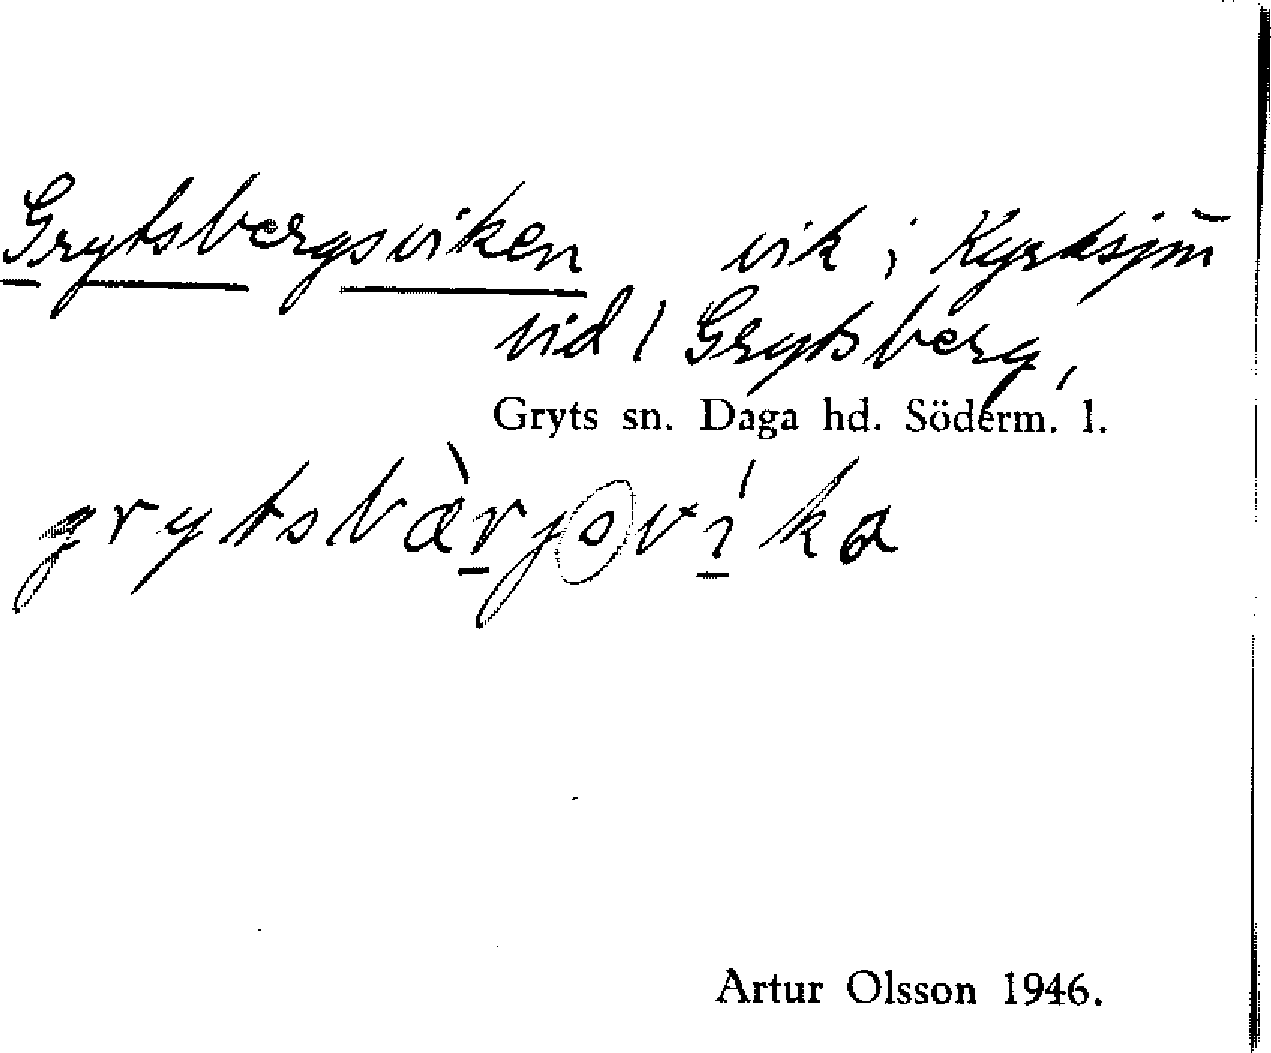 Grytsbergsviken vik i Kyrksjön
vid / Grytsberg,
Gryts sn. Daga hd. Söderm. l.
grytsbæ̀rjsvíka
Artur Olsson 1946.